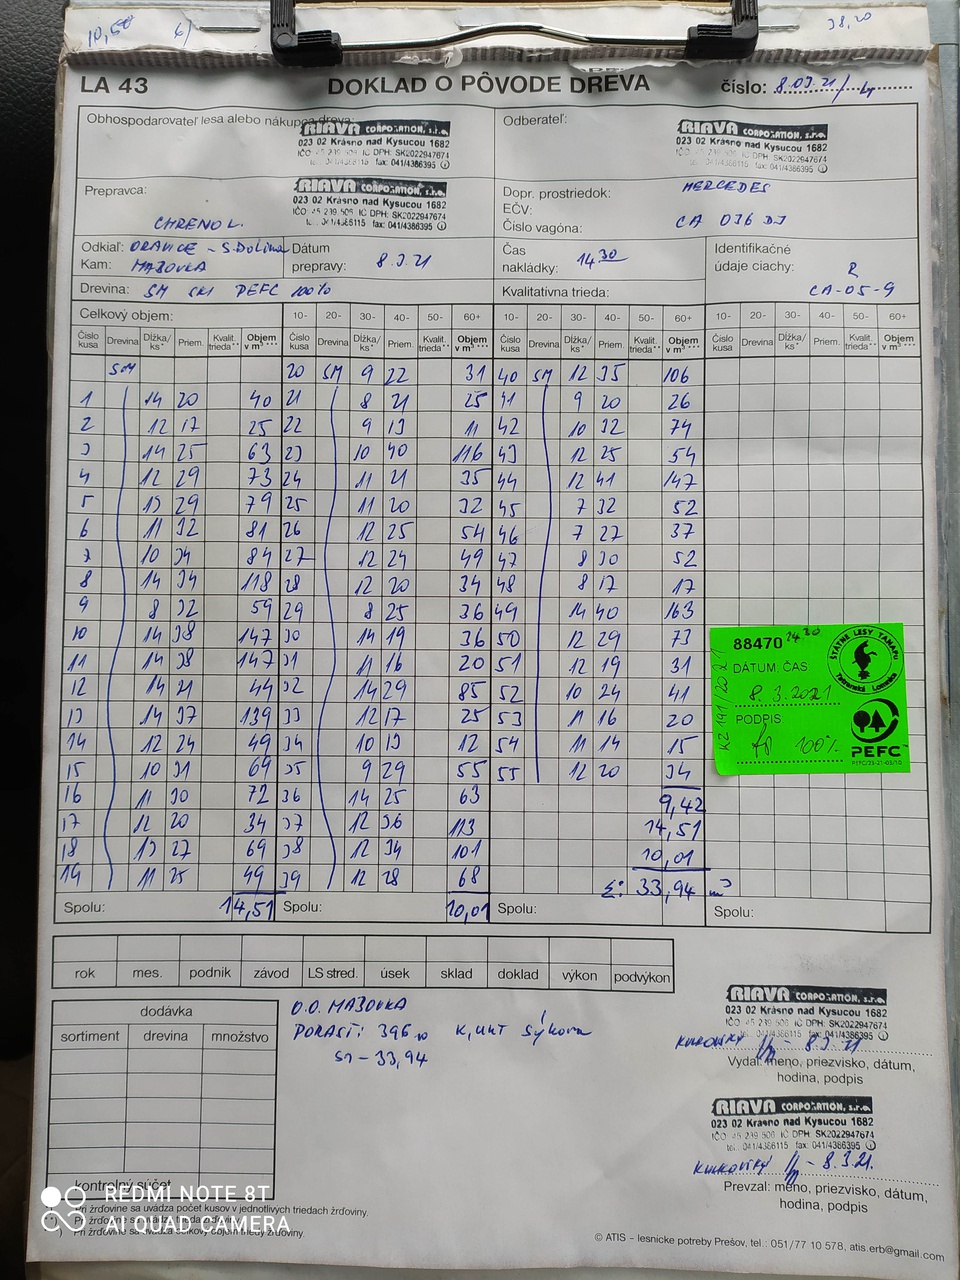 10,50
6/
38,20
LA 43 DOKLAD O PÔVODE DREVA číslo: 8.03.21/4
Obhospodarovateľ lesa alebo nákupca dreva:
RIAVA CORPORATION, s.r.o.
023 02 Krásno nad Kysucou 1682
IČO 45 239 506 IC DPH: SK2022947674
tel.: 041/4386115 fax: 041/4386395
Odberateľ:
RIAVA CORPORATION, s.r.o.
023 02 Krásno nad Kysucou 1682
IČO 45 239 506 IC DPH: SK2022947674
tel.: 041/4386115 fax: 041/4386395
Prepravca:
RIAVA CORPORATION, s.r.o.
023 02 Krásno nad Kysucou 1682
IČO 45 239 506 IC DPH: SK2022947674
tel.: 041/4386115 fax: 041/4386395
CHRENO L.
Dopr. prostriedok: MERCEDES
EČV:
Číslo vagóna: CA 036 DJ
Odkiaľ: ORAVICE - S.Dolina
Kam: MAZOVKA
Dátum prepravy: 8.3.21
Čas nakládky: 14 30
Identifikačné údaje ciachy: R
CA-05-9
Drevina: SM PEFC 100%
Kvalitatívna trieda:
Celkový objem: 10- 20- 30- 40- 50- 60+ 10- 20- 30- 40- 50- 60+ 10- 20- 30- 40- 50- 60+
Číslo kusa Drevina Dĺžka/ks* Priem. Kvalit. trieda** Objem v m³*** Číslo kusa Drevina Dĺžka/ks* Priem. Kvalit. trieda** Objem v m³*** Číslo kusa Drevina Dĺžka/ks* Priem. Kvalit. trieda** Objem v m³*** Číslo kusa Drevina Dĺžka/ks* Priem. Kvalit. trieda** Objem v m³***
SM 20 SM 9 22 31 40 SM 12 35 106
1 14 20 40 21 8 21 25 41 9 20 26
2 12 17 25 22 9 13 11 42 10 32 74
3 14 25 63 23 10 40 116 43 12 25 54
4 12 29 73 24 11 21 35 44 12 41 147
5 13 29 79 25 11 20 32 45 7 32 52
6 11 32 81 26 12 25 54 46 7 27 37
7 10 34 84 27 12 24 49 47 8 30 52
8 14 34 118 28 12 20 34 48 8 17 17
9 8 32 59 29 8 25 36 49 14 40 163
10 14 38 147 30 14 19 36 50 12 29 73
11 14 38 147 31 11 16 20 51 12 19 31
12 14 21 44 32 14 29 85 52 10 24 41
13 14 37 139 33 12 17 25 53 11 16 20
14 12 24 49 34 10 13 12 54 11 14 15
15 10 31 69 35 9 29 55 55 12 20 34
16 11 30 72 36 14 25 63 9,42
17 12 20 34 37 12 36 113 14,51
18 13 27 69 38 12 34 101 10,01
19 11 25 49 39 12 28 68 Σ: 33,94 m³
Spolu: 14,51 Spolu: 10,01 Spolu: Spolu:
88470 14 30
DÁTUM, ČAS
8.3.2021
PODPIS
100%
KZ 191/2021
ŠTÁTNE LESY TANAPU
Tatranská Lomnica
PEFC™
PEFC/23-21-03/10
rok mes. podnik závod LS stred. úsek sklad doklad výkon podvýkon
dodávka
sortiment drevina množstvo
kontrolný súčet
O.O. MAZOVKA
PORAST: 396 10 K,UHT Sýkora
SM - 33,94
RIAVA CORPORATION, s.r.o.
023 02 Krásno nad Kysucou 1682
IČO 45 239 506 IC DPH: SK2022947674
tel.: 041/4386115 fax: 041/4386395
- 8.3.21
Vydal: meno, priezvisko, dátum,
hodina, podpis
RIAVA CORPORATION, s.r.o.
023 02 Krásno nad Kysucou 1682
IČO 45 239 506 IC DPH: SK2022947674
tel.: 041/4386115 fax: 041/4386395
- 8.3.21.
Prevzal: meno, priezvisko, dátum,
hodina, podpis
* Pri žrďovine sa uvádza počet kusov v jednotlivých triedach žrďoviny.
Pri žrďovine sa uvádza trieda žrďoviny.
Pri žrďovine sa uvádza celkový objem triedy žrďoviny.
© ATIS – lesnícke potreby Prešov, tel.: 051/77 10 578, atis.erb@gmail.com
REDMI NOTE 8T
AI QUAD CAMERA